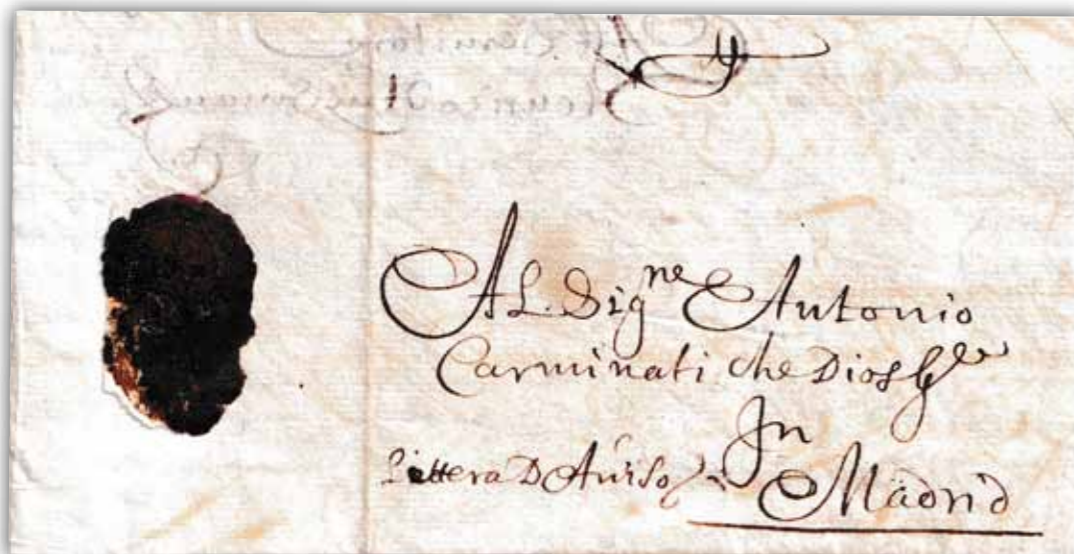 Al. Sig.ne Antonio
Carminati che Dios G.de
In
Littera D Aviso Madrid